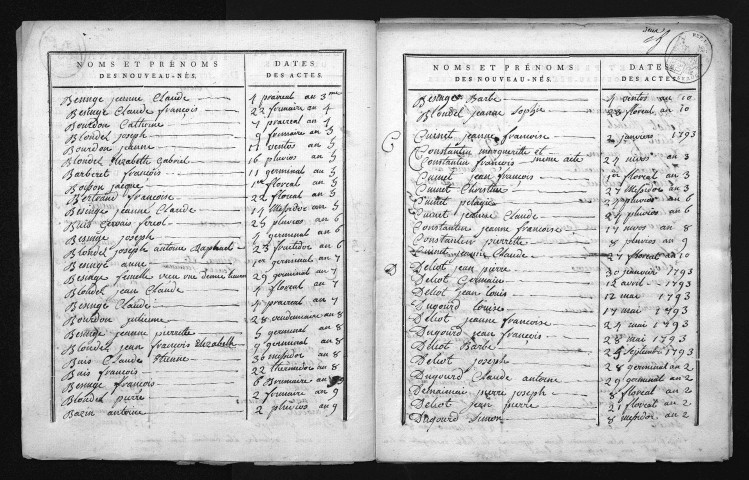 NOMS ET PRÉNOMS DES NOUVEAU-NÉS. DATES DES ACTES.
Besuge jeanne Claude 4 praireal an 3me
Besuge Claude françois 22 frimaire an 4
Bourdon Catherine 4 prareal an 4
Blondel joseph 9 frimaire an 5
Bourdon jeanne 11 ventos an 5
Blondel Elizabeth Gabriel 16 pluvios an 5
Barberet françois 11 germinal an 5
Boisson jacque 1er floreal an 5
Bertrand francoise 22 floreal an 5
Besuge jeanne Claude 14 Messidor an 5
Buis Gervais fereol 25 pluvios an 6
Besuge joseph 4 germinal an 6
Blondel joseph antoine Raphael 23 fructidor an 6
Besuge anne 1er germinal an 7
Besuge femelle vieu une demie heure 29 germinal an 7
Blondel jean Claude 4 floreal an 7
Besuge Claude 4 praireal an 7
Bourdon julienne 28 vendemiaire an 8
Besuge jeanne pierrette 5 germinal an 8
Blondel jean françois Elizabeth 9 germinal an 8
Buis Claude Etienne 30 messidor an 8
Buis françois 22 thermidor an 8
Besuge françois 6 Brumaire an 9
Blondel pierre 2 frimaire an 9
Bazin antoine 2 pluvios an 9
NOMS ET PRÉNOMS DES NOUVEAU-NÉS. DATES DES ACTES.
Besuge Barbe 4 ventos an 10
Blondel jeanne Sophie 28 floreal an 10
C
Cuinet jeanne francoise 2 janviers 1793
Constantin margueritte et
Constantin françois meme acte 24 nivos an 3
Cuinet jean françois 1er floreal an 3
Cuinet Christine 27 Messidor an 3
Cuinet pelagie pluvios an 6
Cuinet jeanne Claude 24 pluvios an 6
Constantin jeanne francoise 17 nivos an 8
Constantin pierrette 8 pluvios an 9
Cuinet jeanne Claude 27 floreal an 10
D
Deliot jean pierre 30 janvier 1793
Deliot Germain 12 avril 1793
Deliot jean Louis 12 mai 1793
Dugourd Louise 17 mai 1793
Deliot jeanne francoise 24 mai 1793
Dugourd jean françois 28 mai 1793
Deliot Barbe 25 Septembre 1793
Deliot joseph 28 germinal an 2
Dugourd Claude antoine 29 germinal an 2
Demaimai pierre joseph 8 floreal an 2
Deliot jean pierre 21 floreal an 2
Dugourd Simon 8 messidor an 2